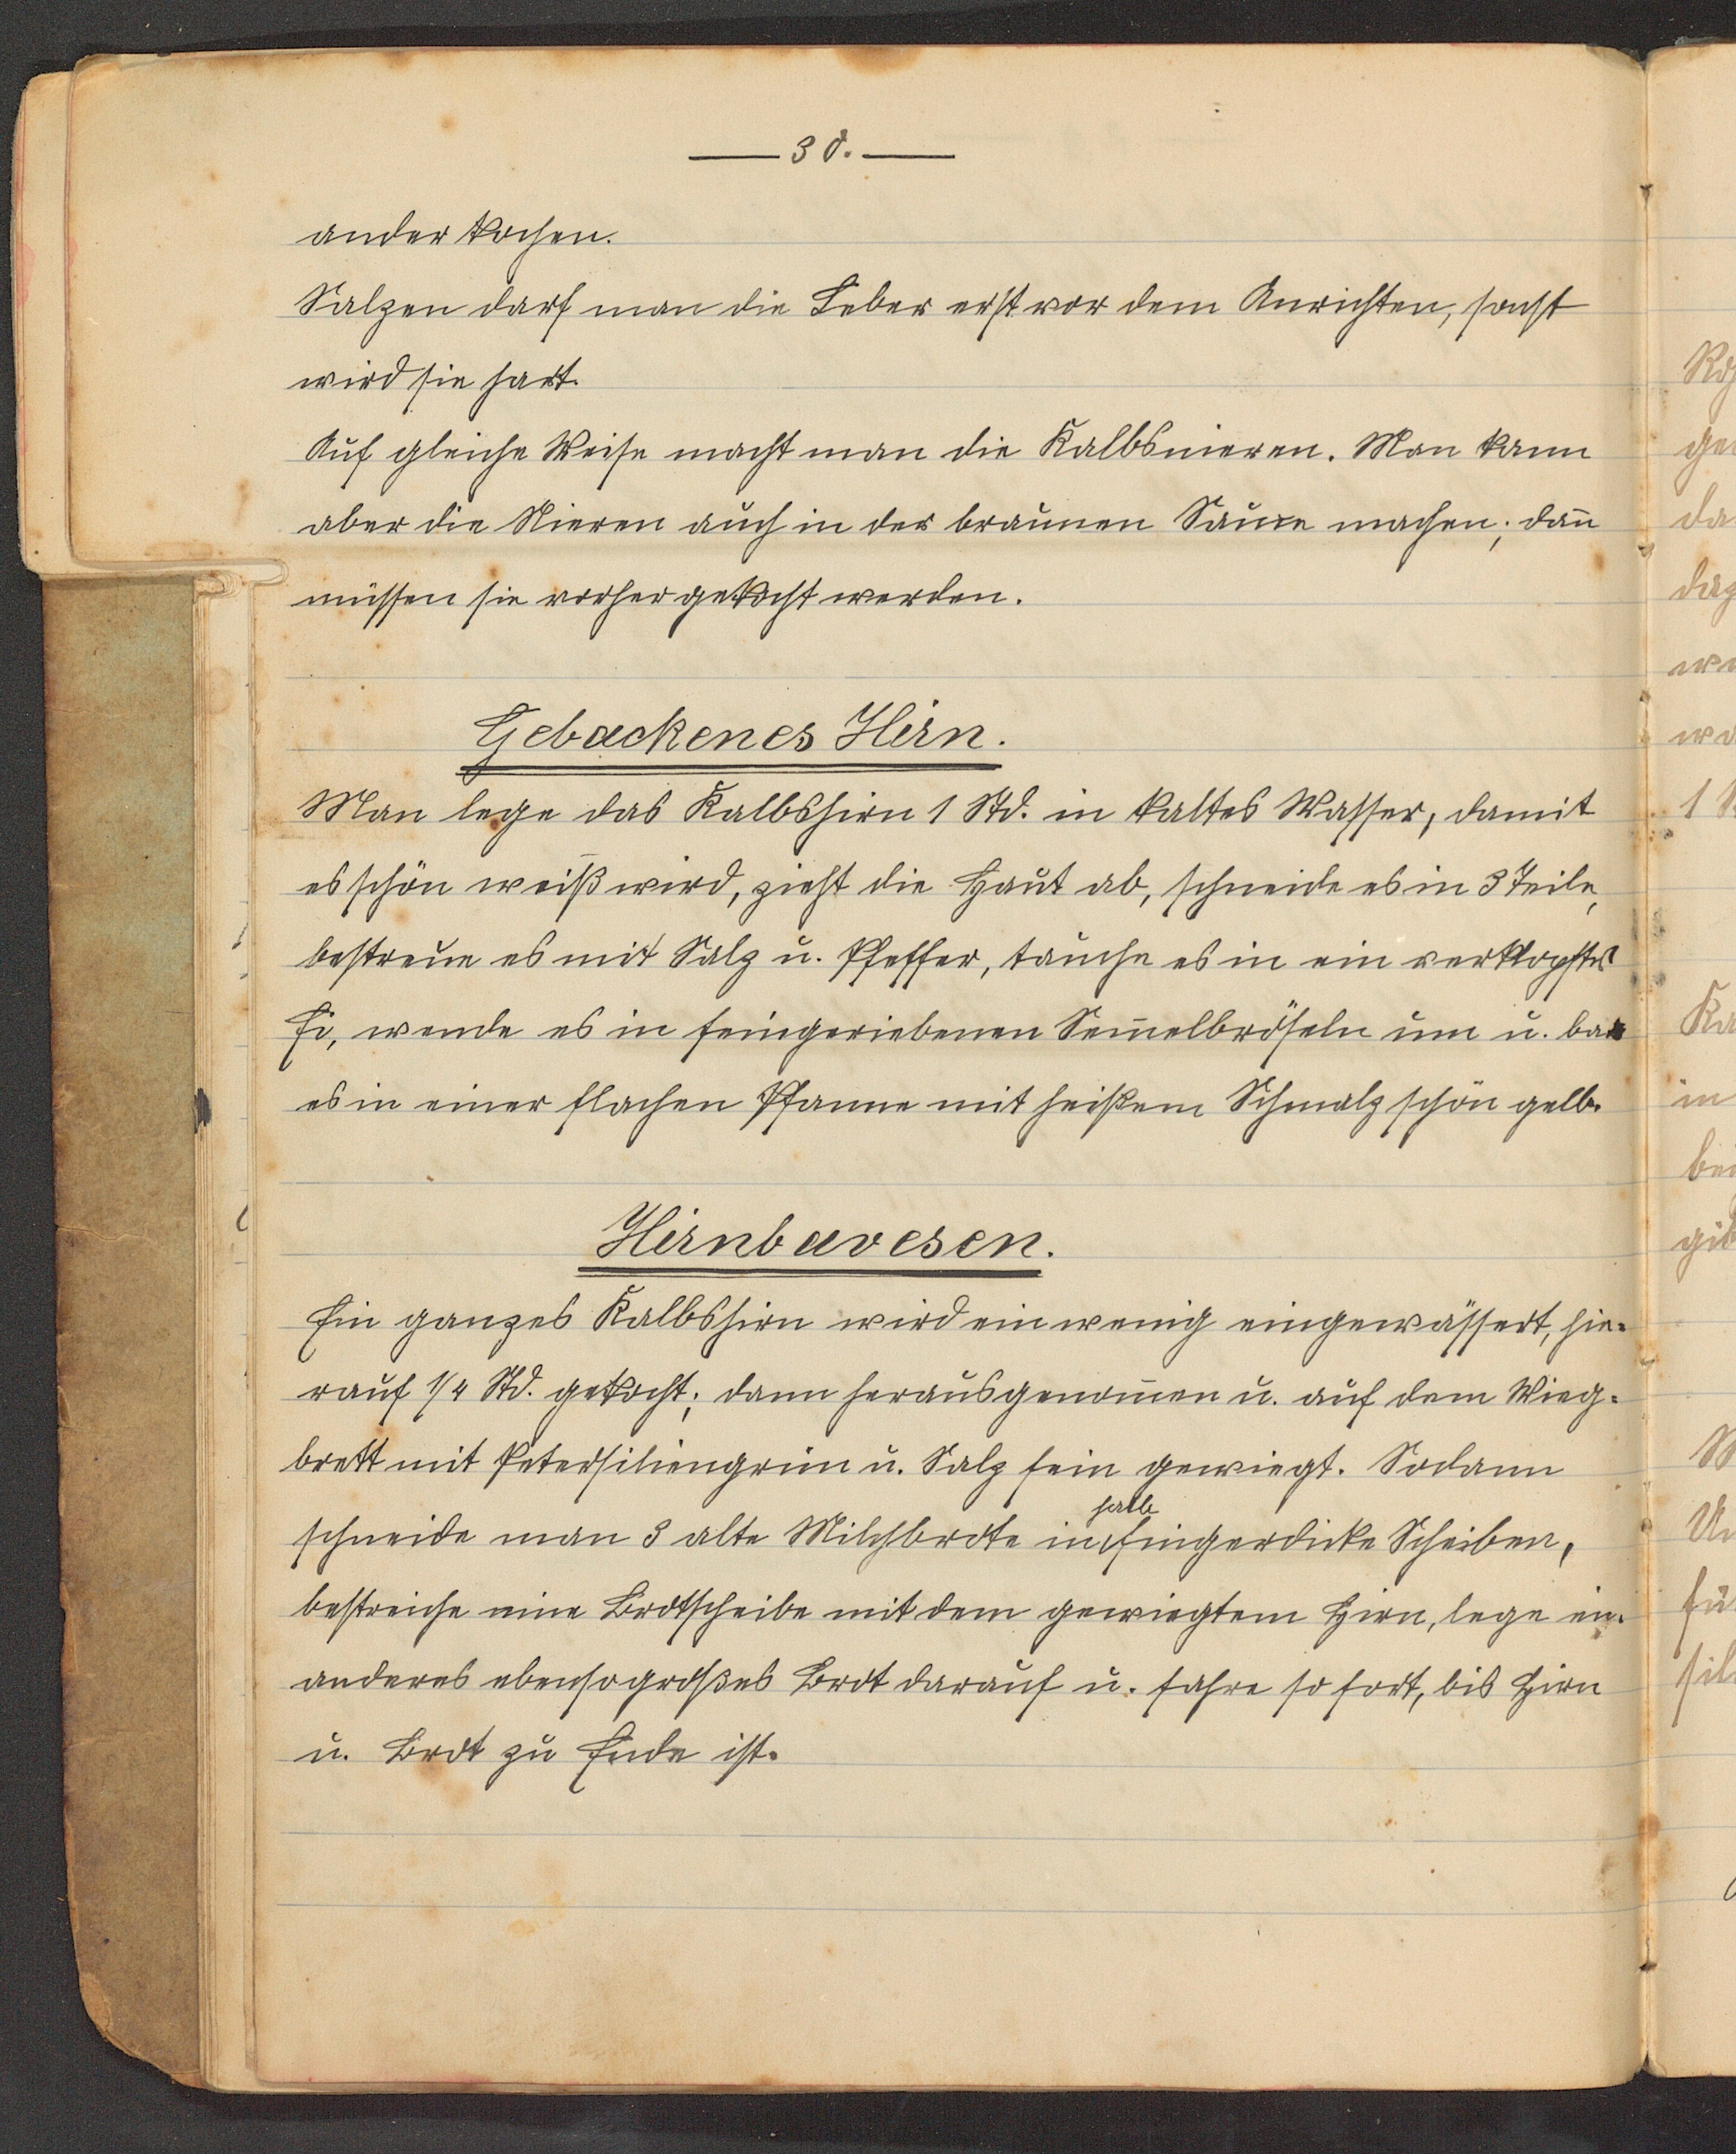 — 38. —
ander kochen.
Salzen darf man die Leber erst vor dem Anrichten, sonst
wird sie hart.
Auf gleiche Weise macht man die Kalbsnieren. Man kann
aber die Nieren auch in der braunen Sauce machen; dan̄
müssen sie vorher gekocht werden.
Gebackenes Hirn.
Man lege das Kalbshirn 1 Std. in kaltes Wasser, damit
es schön weiß wird, zieht die Haut ab, schneide es in 3 Teile,
bestreue es mit Salz u. Pfeffer, tauche es in ein verklopftes
Ei, wende es in feingeriebenen Sem̄elbröseln um u. back
es in einer flachen Pfanne mit heißem Schmalz schön gelb.
Hirnbavesen.
Ein ganzes Kalbshirn wird ein wenig eingewässert, hie-
rauf 1/4 Std. gekocht; dann herausgenom̄en u. auf dem Wieg-
brett mit Petersiliengrün u. Salz fein gewiegt. Sodann
halb
schneide man 3 alte Milchbrote in fingerdicke Scheiben,
bestreiche eine Brotscheibe mit dem gewiegtem Hirn, lege ein
anderes ebensogroßes Brot darauf u. fahre so fort, bis Hirn
u. Brot zu Ende ist.